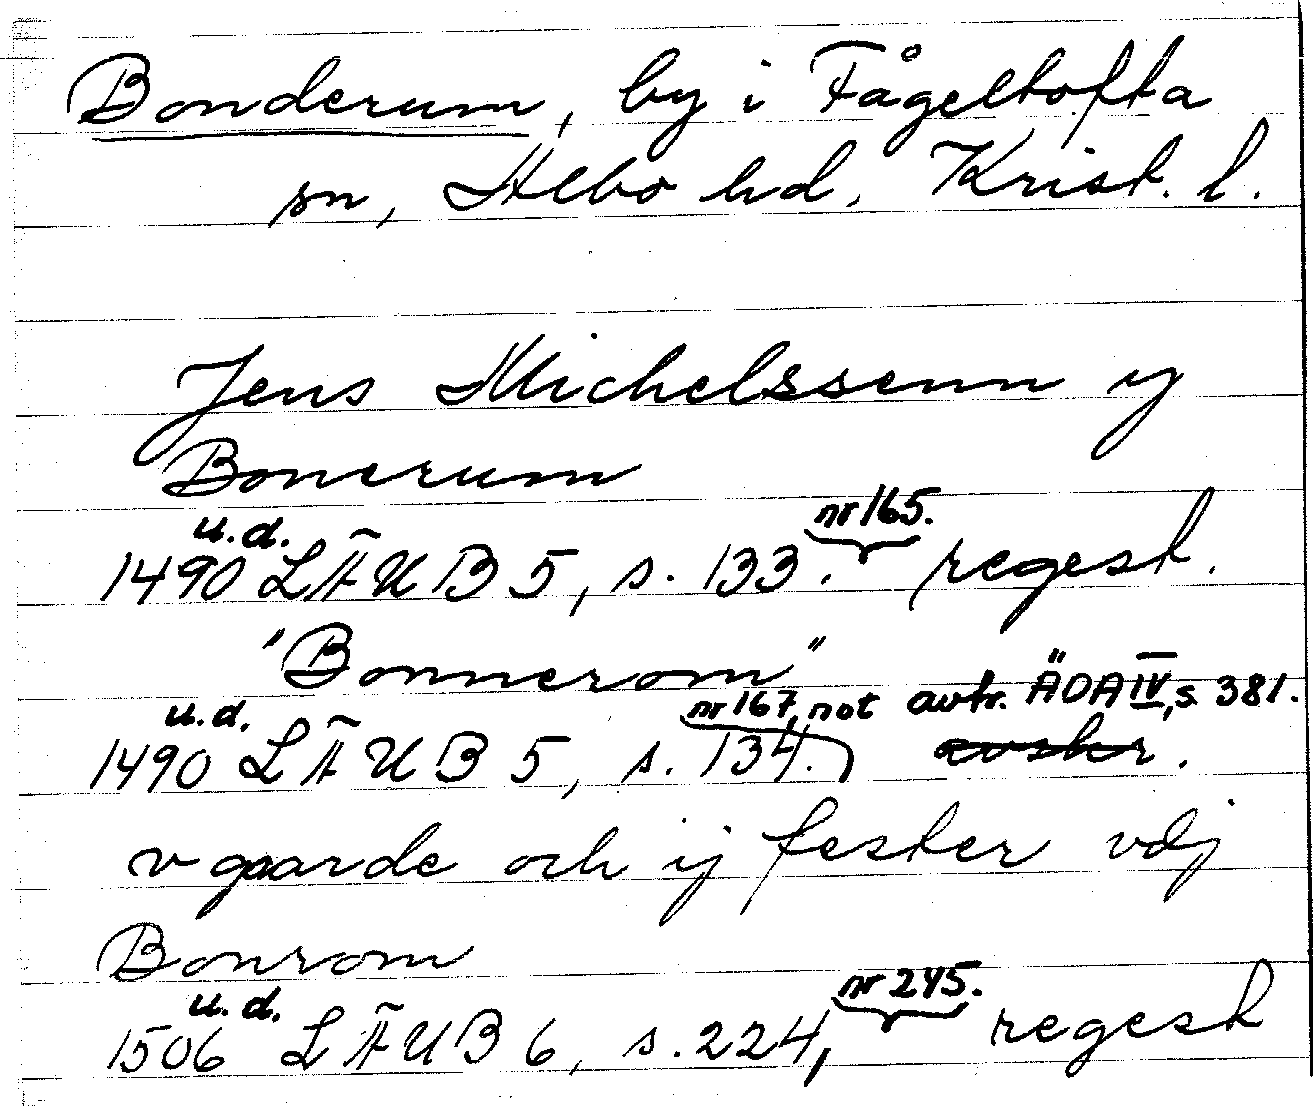 Bonderum, by i Fågeltofta
sn, Albo hd, Krist. l.
Jens Michelssenn y
Bonerum
u.d. nr 165.
1490 LÄUB 5, s. 133. regest.
"Bonnerom"
u.d. nr 167, not avtr. ÄDA IV, s. 381.
1490 LÄUB 5, s. 134.
v gaarde och ij fester vdj
Bonrom
u.d. nr 245.
1506 LÄUB 6, s. 224, regest